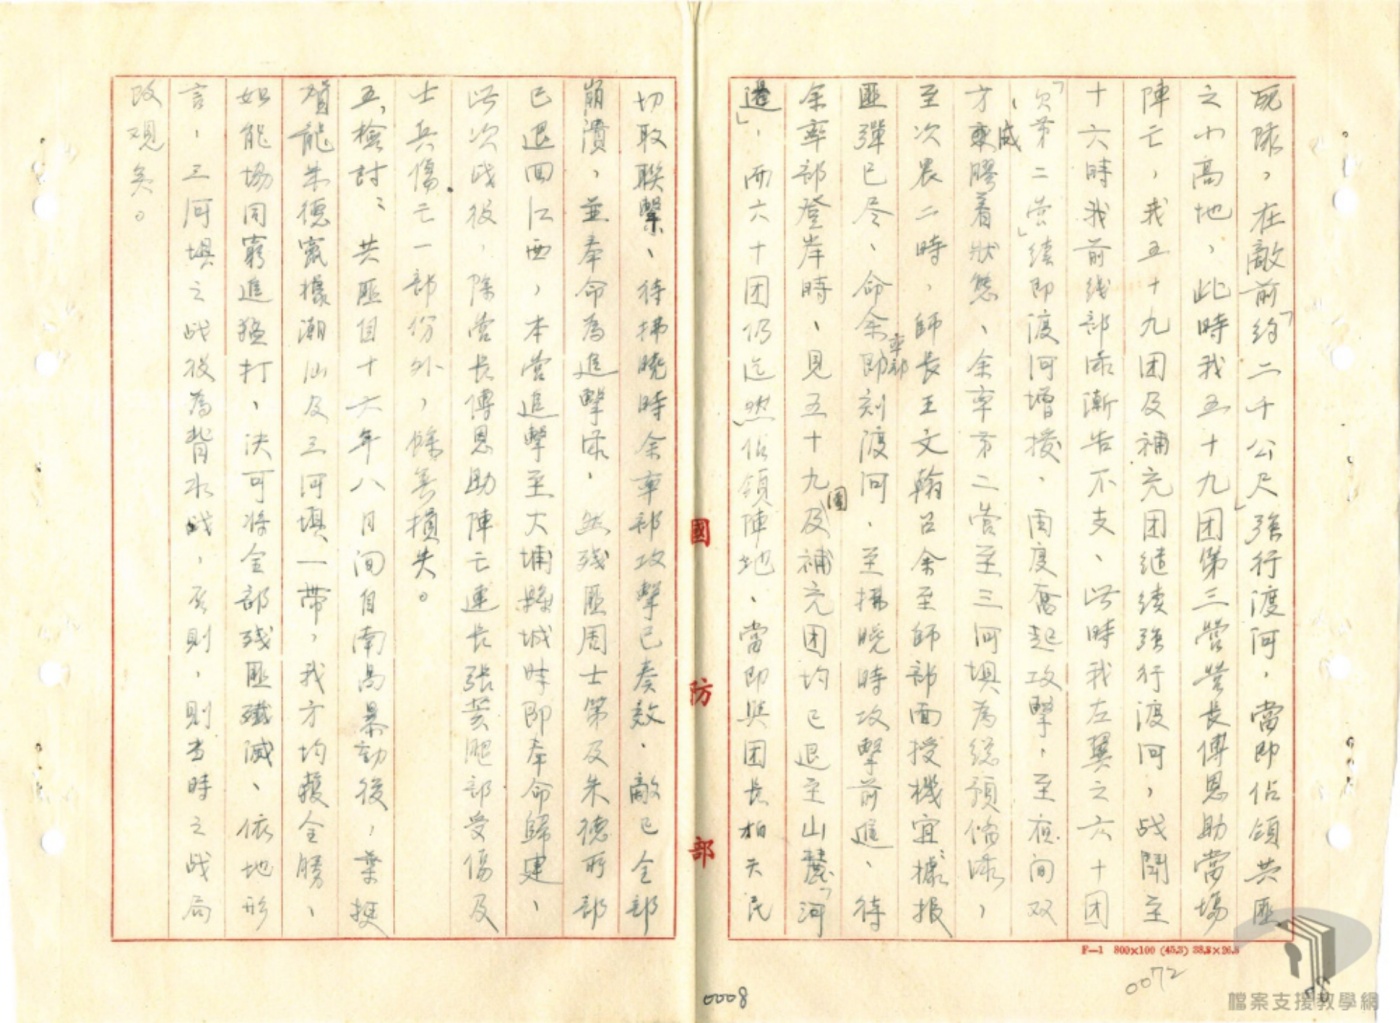 玩隊，在敵前「約二千公尺」強行渡河，當即佔領共匪
之小高地，此時我五十九團第三營營長傅恩助當場
陣亡，我五十九团及補充团繼續強行渡河，战鬪至
十六時我前线部隊漸告不支、此時我左翼之六十团
「欠第二营」續即渡河增援、兩度奮起攻擊，至夜間双
方成膠着狀態、余率第二营至三河壩為總預備隊，
至次晨二時，師長王文翰召余至師部面授機宜，據報
匪彈已尽、命余率部即刻渡河、至拂曉時攻擊前進、待
余率部登岸時、見五十九团及補充团均已退至山麓「河
邊」，而六十团仍迄然佔領陣地、當即與团長柏天民
切取联繫、待拂曉時余率部攻擊已奏效、敵已全部
崩潰，並奉命為追擊隊，然残匪周士第及朱德所部
已退回江西，本营追擊至大埔縣城時即奉命歸建、
此次战役，除营長傅恩助陣亡連長張黄 部受傷及
士兵傷亡一部份外，餘無損失。
五、檢討：共匪自十六年八月間自南昌暴動後，葉挺
賀龍朱德竄擾潮汕及三河壩一帶，我方均獲全勝、
如能協同窮進猛打、決可将全部残匪殲滅、依地形
言，三河壩之战役為背水战，否則，則当時之战局
改观矣。
國防部
F—1 800×100 (45.5) 38.8×26.8
0072
0008
檔案支援教學網